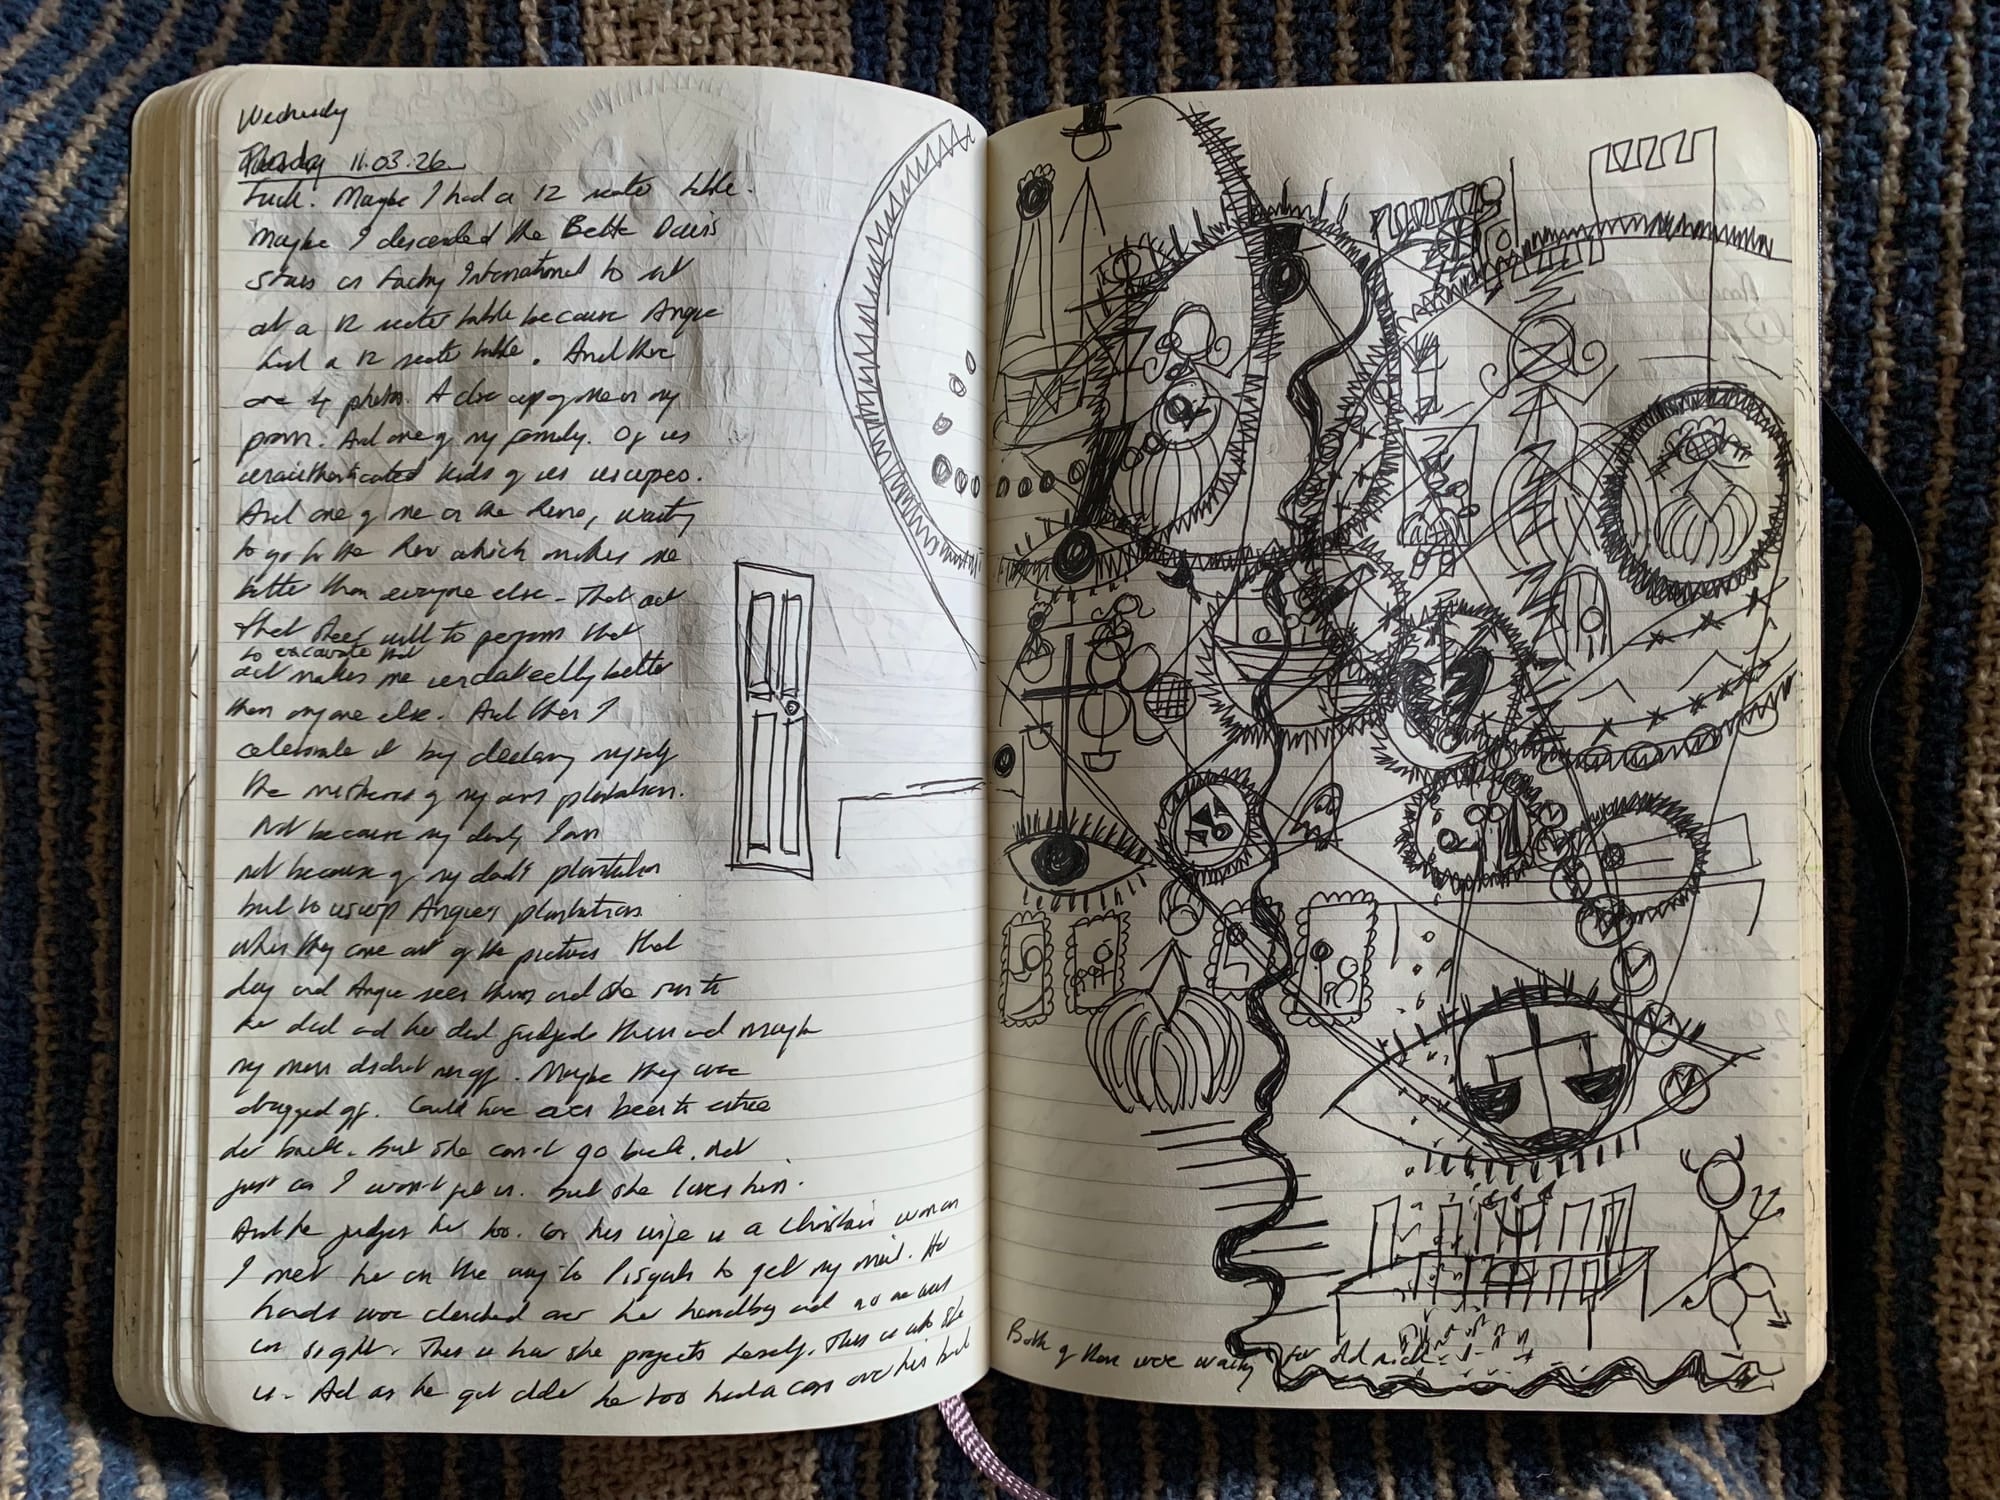 Wednesday
Thursday 11.03.26
Fuck. Maybe I had a 12 seater table.
Maybe I descended the Bette Davis
stairs as Factory International to sit
at a 12 seater table because Angie
had a 12 seater table. And there
are 4 photos. A close up of me in my
prom. And one of my family. Of us
unauthenticated kids of us usurpers.
And one of me on the Reno, waiting
to go to the Rev which makes me
better than everyone else. That act
that sheer will to perform that
to excavate that
act makes me undoubtedly better
than anyone else. And then I
celebrate it by declaring myself
the mistress of my own plantation.
Not because my daddy I am
not because of my dad's plantation
but to usurp Angie's plantation
when they come out of the pictures that
day and Angie sees them and she runs to
her dad and her dad judged them and maybe
my mam didn't run off. Maybe they were
dragged off. Could have even been to entice
her back. But she can't go back. Not
just as I won't. But she loves him.
And he judges her too. For his wife is a Christian woman
I met her on the way to Pisgah to get my mail. Her
hands were clenched over her handbag and no one was
in sight. This is how she projects herself. This is who she
is. And as he got older he too had a cross over his bed
Both of them were waiting for Old nick